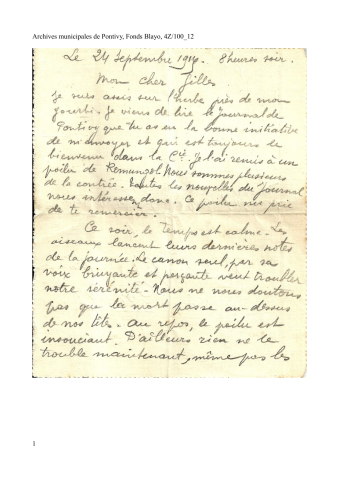 Archives municipales de Pontivy, Fonds Blayo, 4Z/100_12
Le 24 Septembre 1916. 8 heures soir.
Mon cher Gilles
Je suis assis sur l'herbe près de mon
gourbi. Je viens de lire le journal de
Pontivy que tu as eu la bonne initiative
de m'envoyer et qui est toujours le
bienvenu dans la Cie. Je l'ai remis à un
poilu de Remungol. Nous sommes plusieurs
de la contrée. Toutes les nouvelles du Journal
nous intéressent donc. Ce poilu me prie
de te remercier.
Ce soir, le temps est calme. Les
oiseaux lancent leurs dernières notes
de la journée. Le canon seul, par sa
voix bruyante et perçante veut troubler
notre sérénité. Nous ne nous doutons
pas que la mort passe au-dessus
de nos têtes. Au repos, le poilu est
insouciant. D'ailleurs rien ne le
trouble maintenant, même pas les
1